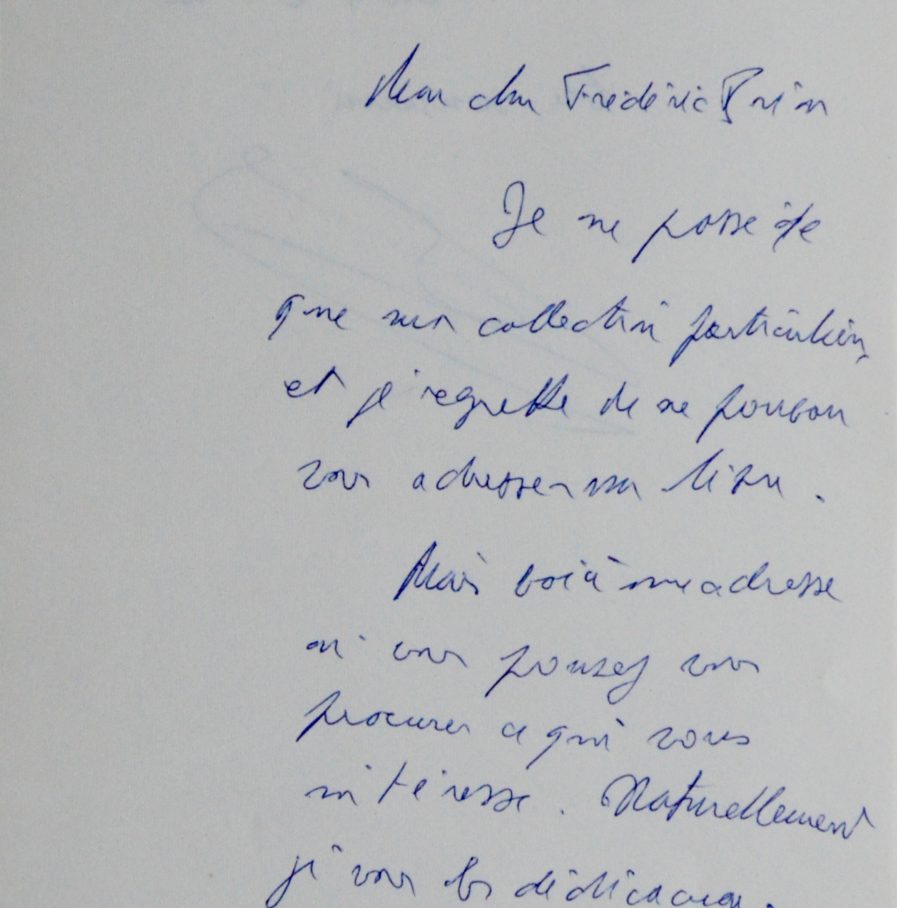 Mon cher Frédéric
Je ne possède
que ma collection particulière,
et je regrette de ne pouvoir
vous adresser
Mais voici une adresse
où vous pouvez vous
procurer ce qui vous
intéresse. Naturellement
je vous les dédicacerai.